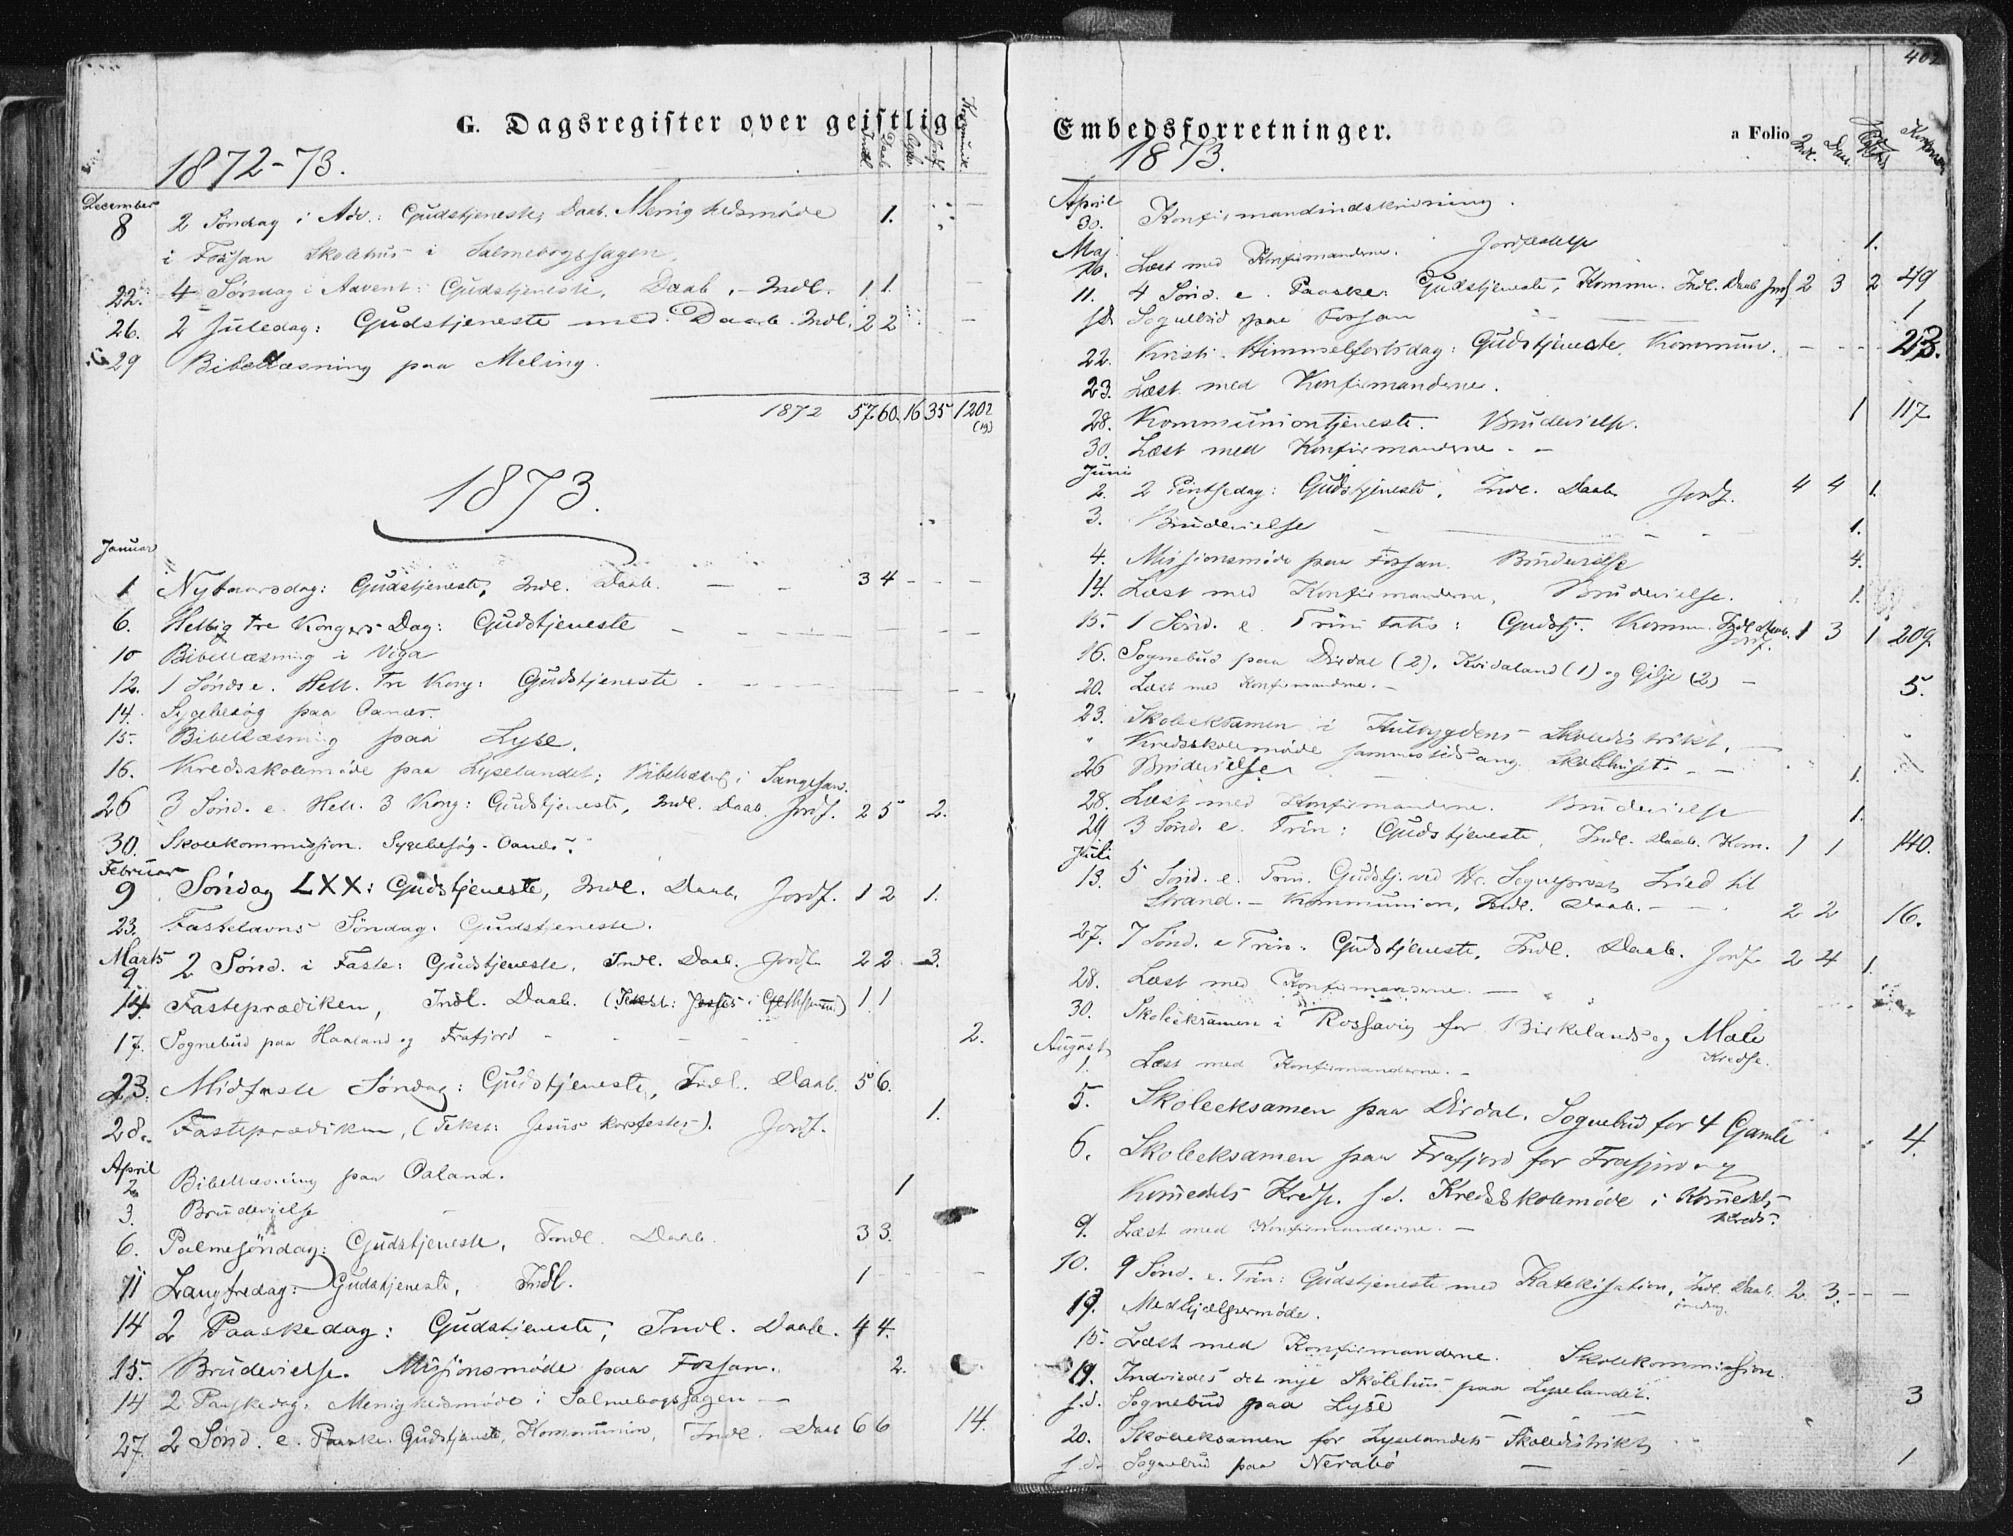 G. Dagsregister over geistlige
Indl. Daab. Jordf. Kommunik.
1872-73.
December
8 2 Søndag i Adv.: Gudstjeneste, Daab. Menighedsmøde 1.
i Fossan Skolehus i Salmebogssagen.
22. 4 Søndag i Advent: Gudstjeneste, Daab, Indl. 1 1.
26. 2 Juledag: Gudstjeneste med Daab. Indl. 2 2
29 Bibellæsning paa Meling.
1872 57 60 16 35 1202
(19)
1873.
Januar
1 Nytaarsdag: Gudstjeneste, Indl. Daab. 3 4
6. Hellig tre Kongers Dag: Gudstjeneste
10 Bibellæsning i Viga
12. 1 Sønds e. Hell. Tre Kong: Gudstjeneste
14. Sygebesøg paa Oanæs.
15. Bibellæsning paa Lyse.
16. Kredsskolemøde paa Lyselandet; Bibellæsn. i Sangesan.
26 3 Sønd. e. Hell. 3 Kong: Gudstjeneste, Indl. Daab. Jordf. 2 5 2.
30. Skolekommission. Sygebesøg - Oanæs.
Februar
9 Søndag LXX: Gudstjeneste, Indl. Daab. Jordf. 1 2 1.
23. Fastelavns Søndag: Gudstjeneste.
Marts
9. 2 Sønd. i Faste: Gudstjeneste. Indl. Daab. Jordf. 2 2 3.
14. Fasteprædiken, Indl. Daab. (Tekst: Jesus i Gethsemane) 1 1
17. Sognebud paa Haaland og Frafjord 2.
23. Midfaste Søndag: Gudstjeneste, Indl. Daab. 5 6.
28. Fasteprædiken, (Tekst: Jesus korsfestes). Jordf. 1.
April
2. Bibellæsning paa Oaland.
3. Brudevielse 1
6. Palmesøndag: Gudstjeneste, Indl. Daab. 3 3.
11 Langfredag: Gudstjeneste, Indl. 1
14 2 Paaskedag: Gudstjeneste, Indl. Daab. 4 4.
15. Brudevielse. Missionsmøde paa Fossan. 2.
14 2 Paaskedag: Menighedsmøde i Salmebogssagen
27. 2 Sønd. e. Paaske. Gudstjeneste, Kommunion, Indl. Daab 6 6 14.
Embedsforretninger.
a Folio
402
Indl. Daab
1873.
April
30. Konfirmandindskrivning.
Maj
10. Læst med Konfirmanderne. Jordfæstelse 1.
11. 4 Sønd. e. Paaske: Gudstjeneste, Kommun. Indl. Daab Jordf 2 3 2 49
s.D. Sognebud paa Fossan 1
22. Kristi Himmelfartsdag: Gudstjeneste. Kommun. 23.
23. Læst med Konfirmanderne.
28. Kommuniontjeneste. Brudevielse. 1 117
30. Læst med Konfirmanderne.
Juni
2. 2 Pintsedag: Gudstjeneste, Indl. Daab Jordf. 4 4 1.
3. Brudevielse 1.
4. Missionsmøde paa Fossan. Brudevielse 4.
14. Læst med Konfirmanderne, Brudevielse. 1.
15. 1 Sønd. e. Trinitatis: Gudstj. Kommun. Indl. Daab. Jordf. 1 3 1 209.
16. Sognebud paa Dirdal (2), Kvidaland (1) og Gilje (2) 5.
20. Læst med Konfirmanderne.
23. Skoleeksamen i Hulbygdens Skoledistrikt.
" Kredsskolemøde sammesteds ang. Skolehuset.
26 Brudevielse 1.
28. Læst med Konfirmanderne. Brudevielse 1.
29 3 Sønd. e. Trin: Gudstjeneste, Indl. Daab. Kom. 1 1 140.
Juli
13. 5 Sønd. e. Trin. Gudstj. ved Hr. Sogneprest Lried til
Strand. - Kommunion, Indl. Daab. 2 2 16.
27. 7 Sønd. e Trin: Gudstjeneste, Indl. Daab. Jordf. 2 4 1.
28. Læst med Konfirmanderne.
30. Skoleeksamen i Rossavig for Birkelands og Mæle
Kredse.
August
1. Læst med Konfirmanderne.
5. Skoleeksamen paa Dirdal. Sognebud for 4 Gamle 4.
6. Skoleeksamen paa Frafjord for Frafjord og
Komedels Kredse. s.d. Kredsskolemøde i Komedels
Kreds.
9. Læst med Konfirmanderne.
10. 9 Sønd. e. Trin: Gudstjeneste med Katekisation, Indl. Daab. 2 3.
13. Medhjælpermøde.
15. Læst med Konfirmanderne. Skolekommission.
19. Indviedes det nye Skolehus paa Lyselandet.
s.d. Sognebud paa Lyse 3
20. Skoleeksamen for Lyselandets Skoledistrikt
s.d. Sognebud paa Nerabø 1